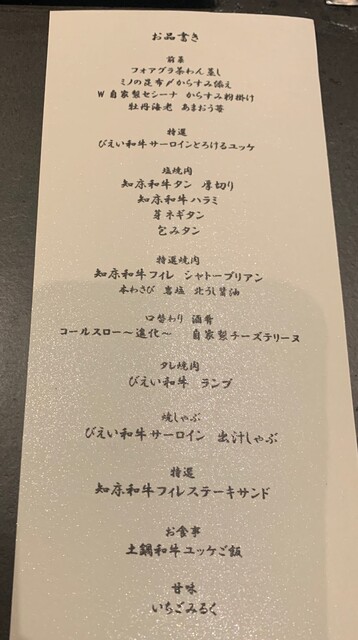 お品書き
前菜
フォアグラ茶わん蒸し
ミノの昆布〆からすみ添え
W 自家製セシーナ からすみ粉掛け
牡丹海老 あまおう苺
特選
びえい和牛サーロインとろけるユッケ
塩焼肉
知床和牛タン 厚切り
知床和牛ハラミ
芽ネギタン
包みタン
特選焼肉
知床和牛フィレ シャトーブリアン
本わさび 岩塩 北うし醤油
口替わり 酒肴
コールスロー〜進化〜 自家製チーズテリーヌ
タレ焼肉
びえい和牛 ランプ
焼しゃぶ
びえい和牛サーロイン 出汁しゃぶ
特選
知床和牛フィレステーキサンド
お食事
土鍋和牛ユッケご飯
甘味
いちごみるく